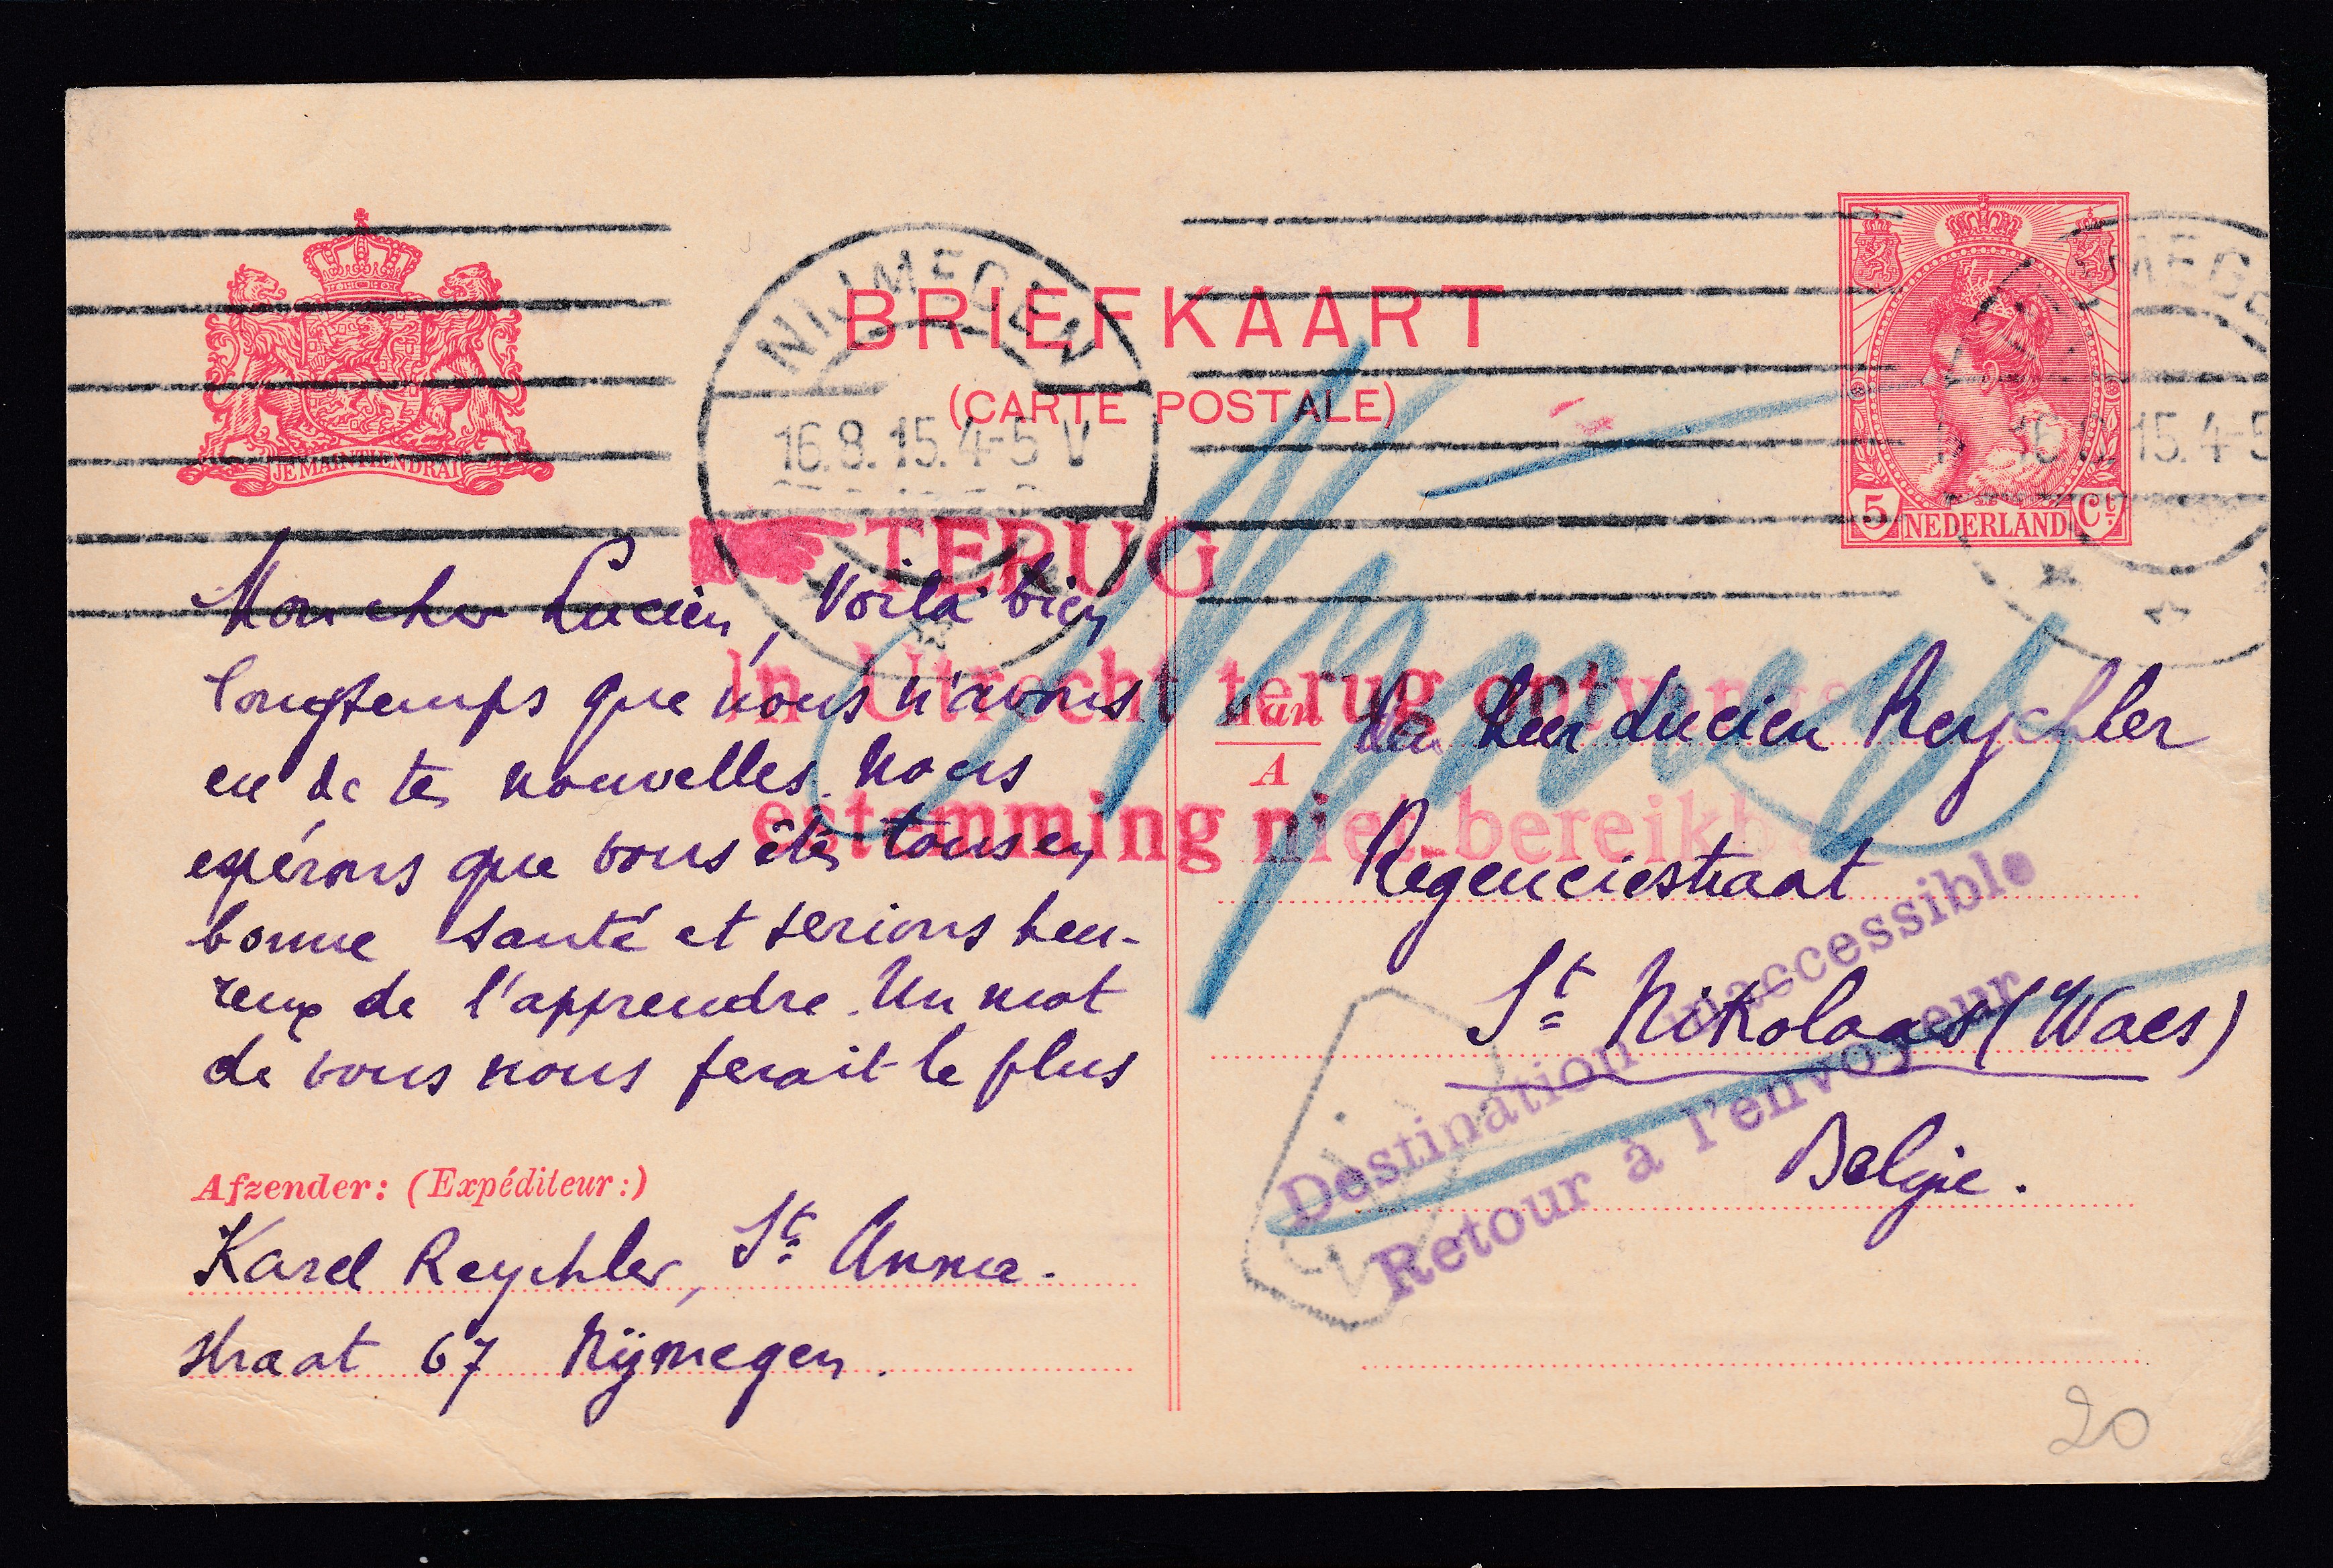 BRIEFKAART
(CARTE POSTALE)
JE MAINTIENDRAI
NIJMEGEN
16.8.15.4-5 V
15.4-5
5 NEDERLAND Ct
TERUG
In Utrecht terug ontvangst
estemming niet bereikb
Mon cher Lucien, Voilà bien
longtemps que nous n'avons
eu de tes nouvelles. Nous
espérons que vous êtes tous en
bonne santé et serions heu-
reux de l'apprendre. Un mot
de vous nous ferait le plus
Afzender: (Expéditeur:)
Karel Reychler, St. Anna-
straat 67 Nijmegen.
Aan
A
Den Heer Lucien Reychler
Regenciestraat
St Nikolaas (Waes)
België.
Destination inaccessible
Retour à l'envoyeur
20